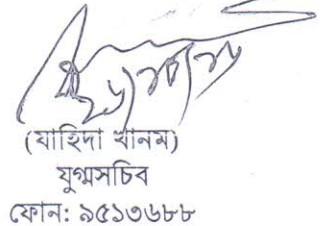 (যাহিদা খানম)
যুগ্মসচিব
ফোন: ৯৫১৩৬৮৮